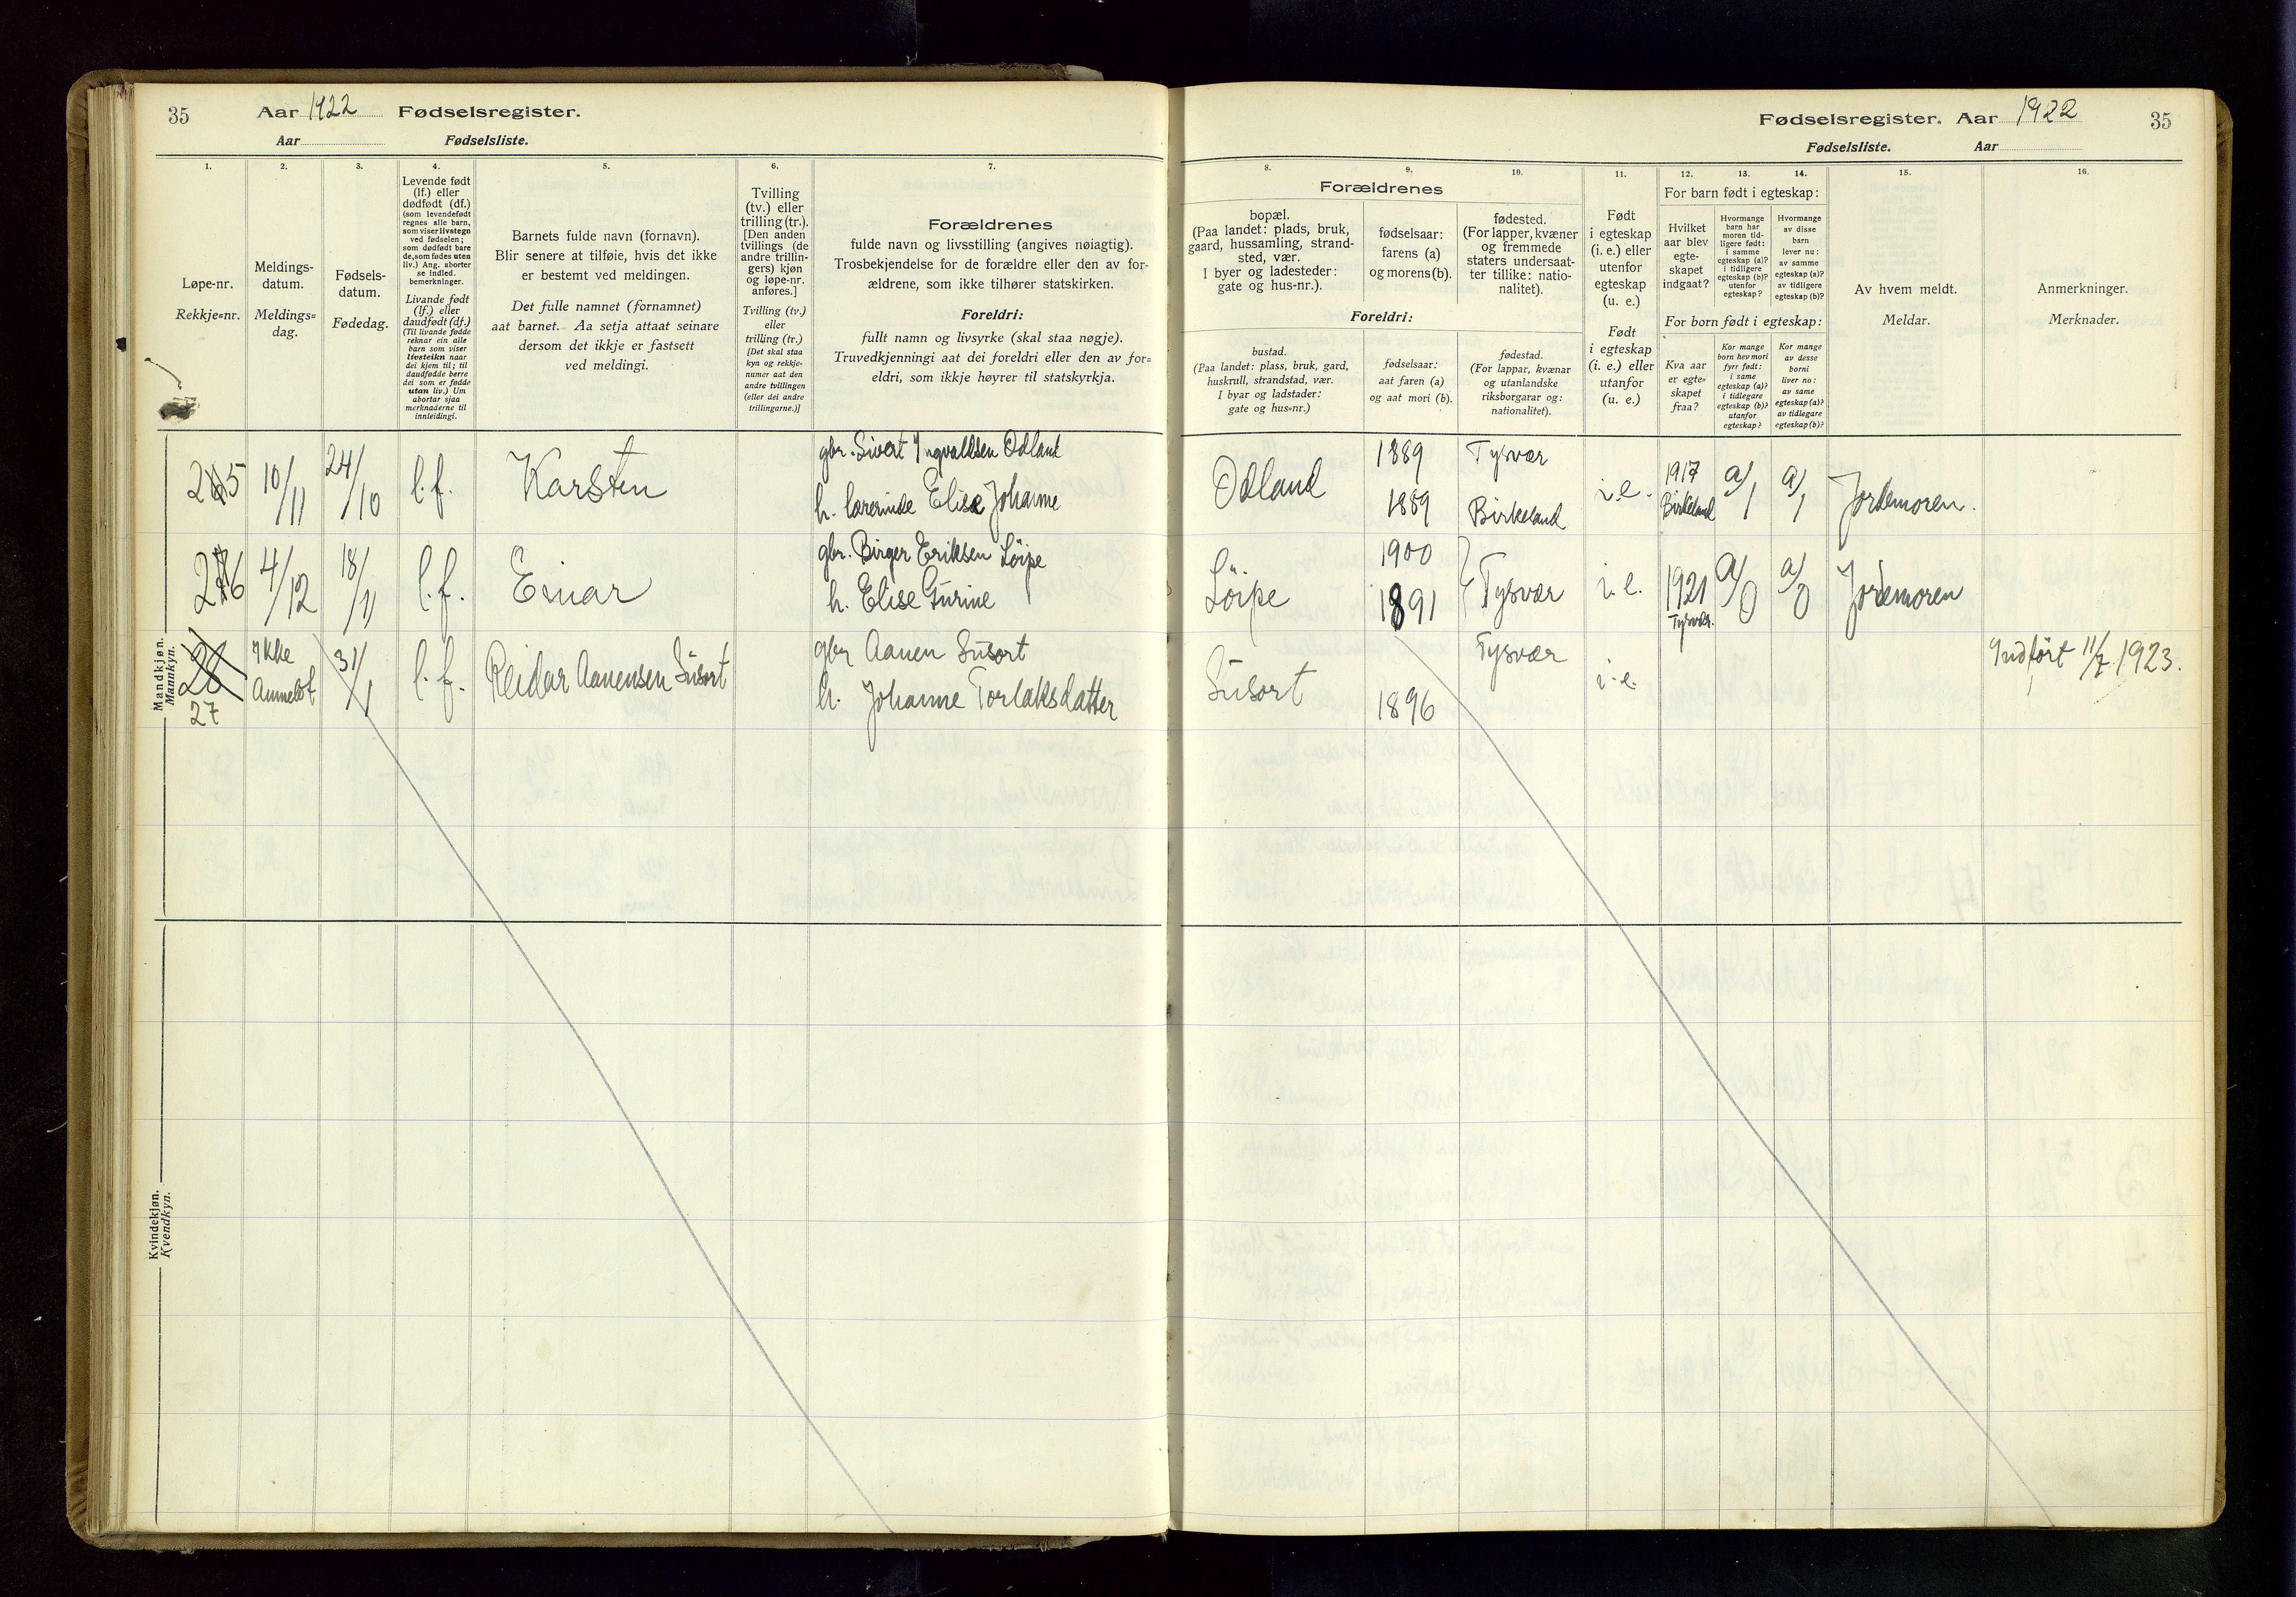 35 Aar 1922 Fødselsregister.
Aar Fødselsliste.
1. 2. 3. 4. 5. 6. 7.
Løpe-nr.
Rekkje=nr.
Meldings-
datum.
Meldings=
dag.
Fødsels-
datum.
Fødedag.
Levende født
(lf.) eller
dødfødt (df.)
(som levendefødt
regnes alle barn,
som viser livstegn
ved fødselen;
som dødfødt bare
de, som fødes uten
liv.) Ang. aborter
se indled.
bemerkninger.
Livande født
(lf.) eller
daudfødt (df.)
(Til livande fødde
reknar ein alle
barn som viser
livsteikn naar
dei kjem til; til
daudfødde berre
dei som er fødde
utan liv.) Um
abortar sjaa
merknaderne til
innleidingi.
Barnets fulde navn (fornavn).
Blir senere at tilføie, hvis det ikke
er bestemt ved meldingen.
Det fulle namnet (fornamnet)
aat barnet. Aa setja attaat seinare
dersom det ikkje er fastsett
ved meldingi.
Tvilling
(tv.) eller
trilling (tr.).
[Den anden
tvillings (de
andre trillin-
gers) kjøn
og løpe-nr.
anføres.]
Tvilling (tv.)
eller
trilling (tr.)
[Det skal staa
kyn og rekkje-
numer aat den
andre tvillingen
(eller dei andre
trillingarne.)]
Forældrenes
fulde navn og livsstilling (angives nøiagtig).
Trosbekjendelse for de forældre eller den av for-
ældrene, som ikke tilhører statskirken.
Foreldri:
fullt namn og livsyrke (skal staa nøgje).
Truvedkjenningi aat dei foreldri eller den av for=
eldri, som ikkje høyrer til statskyrkja.
Mandkjøn.
Mannkyn.
25 10/11 24/10 l.f. Karsten
gbr. Sivert Ingvaldsen Odland
h. lærerinde Elise Johanne
26 4/12 18/11 l.f. Einar
gbr. Birger Eriksen Løipe
h. Elise Gurine
28
27
Ikke
Anmeldt
31/1 l.f. Reidar Aanensen Susort
gbr Aanen Susort
h. Johanne Torlaksdatter
Kvindekjøn.
Kvendkyn.
Fødselsregister. Aar 1922 35
Fødselsliste. Aar
8. 9. 10. 11. 12. 13. 14. 15. 16.
Forældrenes
bopæl.
(Paa landet: plads, bruk,
gaard, hussamling, strand-
sted, vær.
I byer og ladesteder:
gate og hus-nr.).
fødselsaar:
farens (a)
og morens (b).
fødested.
(For lapper, kvæner
og fremmede
staters undersaat-
ter tillike: natio-
nalitet).
Foreldri:
bustad.
(Paa landet: plass, bruk, gard,
huskrull, strandstad, vær.
I byar og ladstader:
gate og hus=nr.)
fødselsaar:
aat faren (a)
og aat mori (b).
fødestad.
(For lappar, kvænar
og utanlandske
riksborgarar og:
nationalitet).
Født
i egteskap
(i. e.) eller
utenfor
egteskap
(u. e.)
Født
i egteskap
(i. e.) eller
utanfor
(u. e.)
For barn født i egteskap:
Hvilket
aar blev
egte-
skapet
indgaat?
Hvormange
barn har
moren tid-
ligere født:
i samme
egteskap (a)?
i tidligere
egteskap (b)?
utenfor
egteskap?
Hvormange
av disse
barn
lever nu:
av samme
egteskap (a)?
av tidligere
egteskap (b)?
For born født i egteskap:
Kva aar
er egte=
skapet
fraa?
Kor mange
born hev mori
fyrr født:
i same
egteskap (a)?
i tidlegare
egteskap (b)?
utanfor
egteskap?
Kor mange
av desse
borni
liver no:
av same
egteskap (a)?
av tidlegare
egteskap (b)?
Av hvem meldt.
Meldar.
Anmerkninger.
Merknader.
Odland 1889 Tysvær
1889 Birkeland
i.e. 1917 Birkeland a/1 a/1 Jordemoren.
Løipe 1900
1891 Tysvær i.e. 1921 Tysvær. a/0 a/0 Jordemoren
Susort 1896 Tysvær i.e. Indført 11/7. 1923.